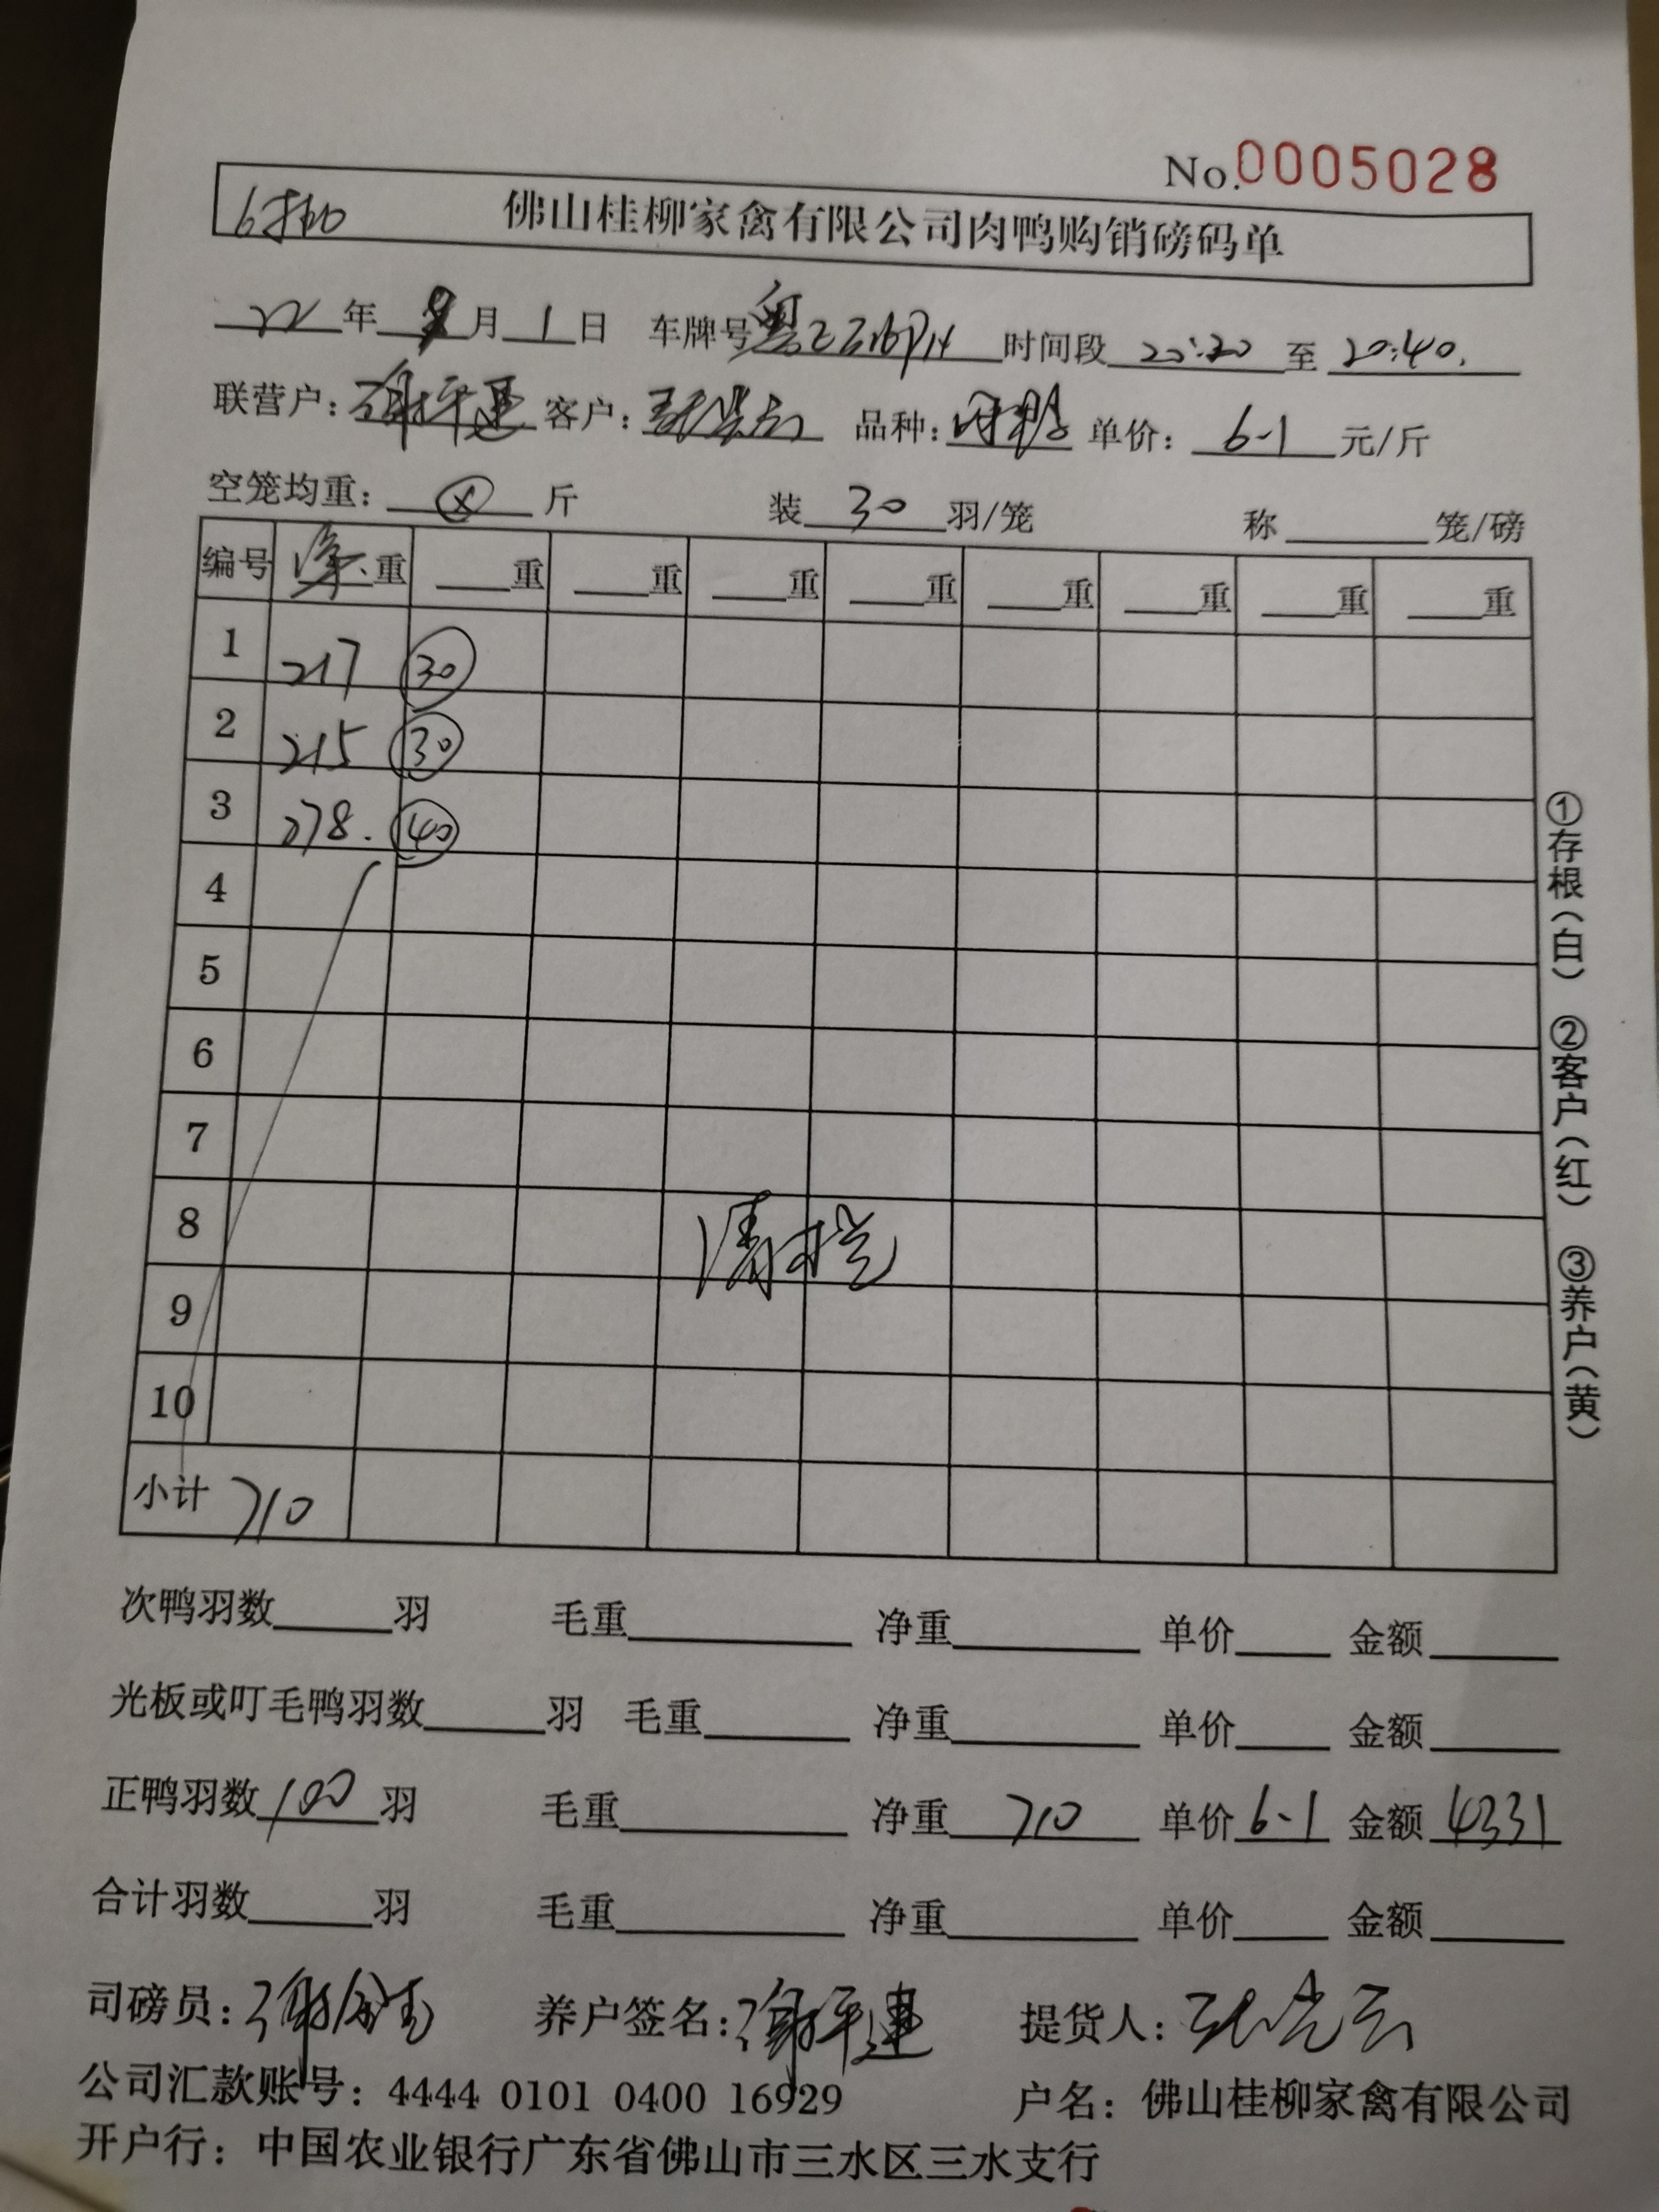 No.0005028
佛山桂柳家禽有限公司肉鸭购销磅码单
22年 月1日 车牌号粤 时间段20:20至20:40.
联营户:谢平建 客户:张光云 品种: 单价:6-1元/斤
空笼均重: 斤 装30羽/笼 称 笼/磅
编号 净重 重 重 重 重 重 重 重 重
1 217 30
2 215 30
3 278. 40
4
5
6
7
8 清栏
9
10
小计 710
次鸭羽数 羽 毛重 净重 单价 金额
光板或叮毛鸭羽数 羽 毛重 净重 单价 金额
正鸭羽数100羽 毛重 净重710 单价6-1 金额4331
合计羽数 羽 毛重 净重 单价 金额
司磅员:谢 养户签名:谢平建 提货人:张光云
公司汇款账号:4444 0101 0400 16929 户名:佛山桂柳家禽有限公司
开户行:中国农业银行广东省佛山市三水区三水支行
①存根(白) ②客户(红) ③养户(黄)